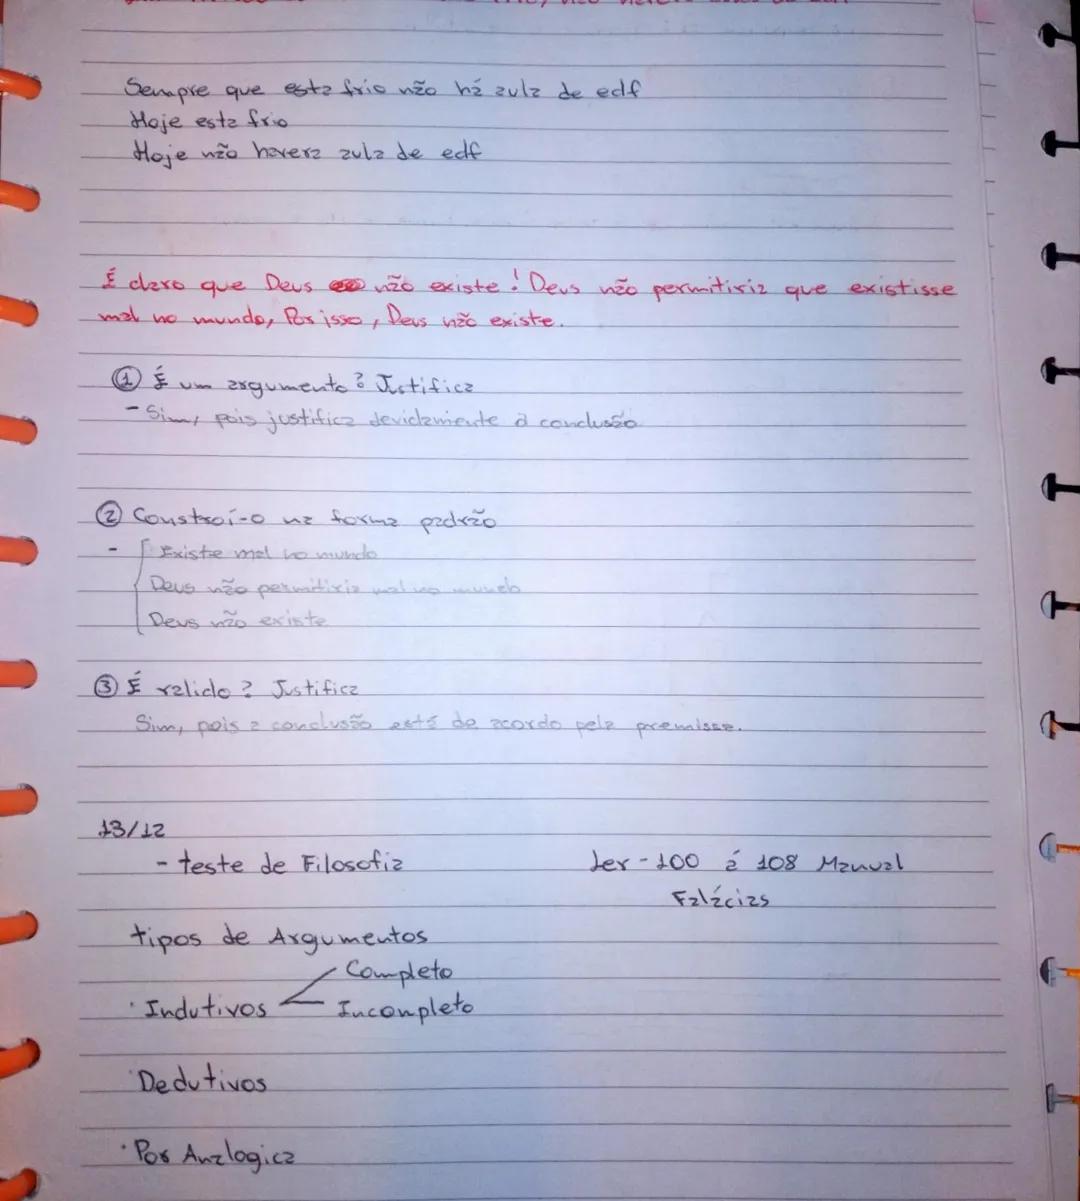 Sempre que esta frio não há aula de edf
Hoje esta frio
Hoje não havera aula de edf
É claro que Deus não existe! Deus não permitiria que existisse
mal no mundo, Por isso, Deus não existe.
① É um argumento? Justifica
- Sim, pois justifica devidamente a conclusão
② Constroi-o na forma padrão
- Existe mal no mundo
Deus não permitiria mal no mundo
Deus não existe
③ É valido? Justifica
Sim, pois a conclusão está de acordo pela premissa.
13/12
- teste de Filosofia Ler - 100 á 108 Manual
Falácias
tipos de Argumentos
Completo
· Indutivos Incompleto
· Dedutivos
· Por Analogica